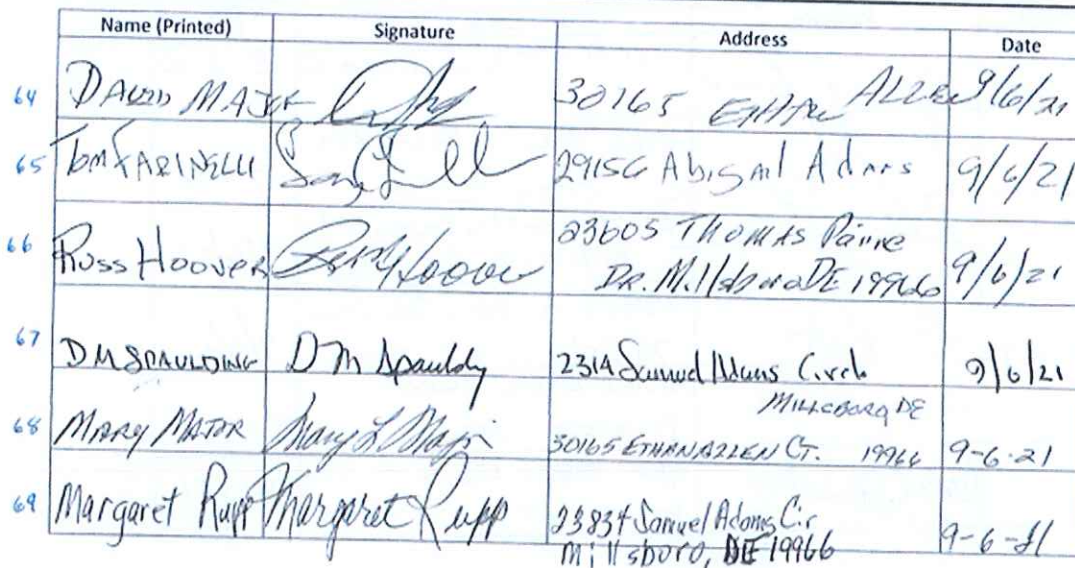 Name (Printed) Signature Address Date
64 DAVID MAJOR 30165 ETHAN ALLEN 9/6/21
65 Tom FARINELLI 29156 Abigail Adams 9/6/21
66 Russ Hoover Russ Hoover 23605 THOMAS Paine
DR. Millsboro DE 19966 9/6/21
67 DM SPAULDING D M Spauldy 2314 Samuel Adams Circle 9/6/21
68 MARY MAJOR Mary L Major MILLSBORO DE
30165 ETHAN ALLEN CT. 19966 9-6-21
69 Margaret Rupp Margaret Rupp 23834 Samuel Adams Cir
Millsboro, DE 19966 9-6-21